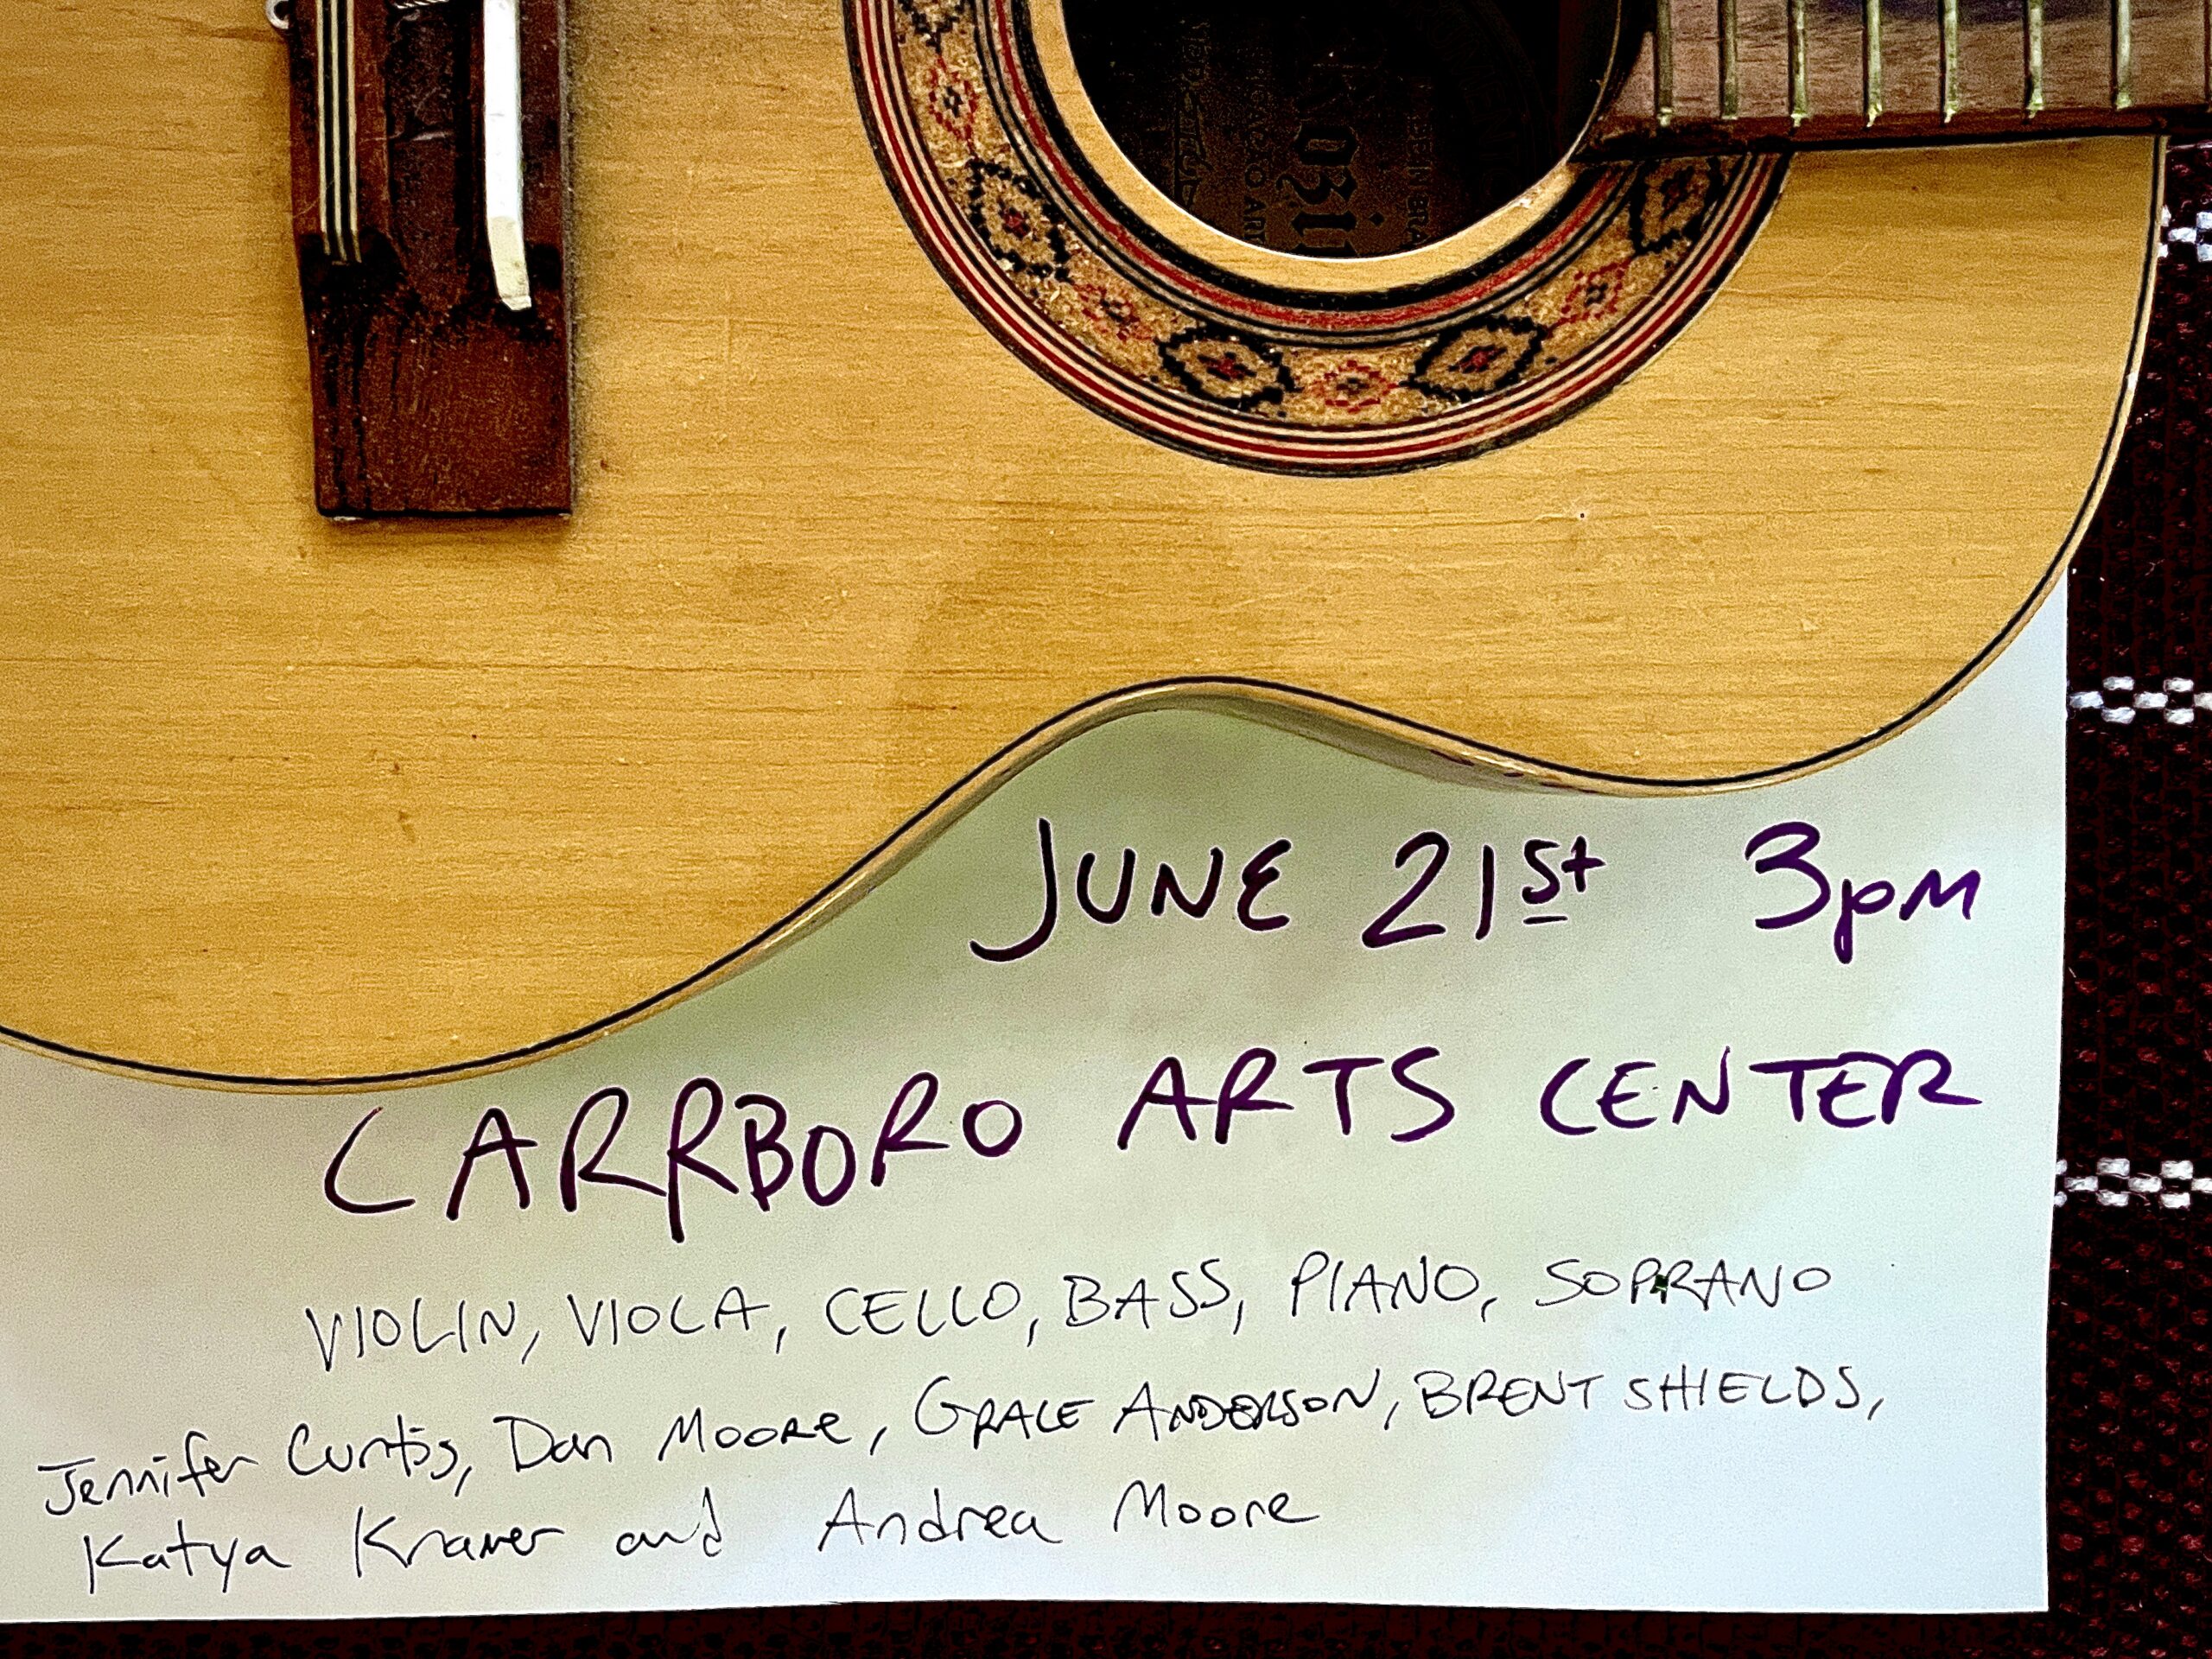 JUNE 21st 3pm
CARRBORO ARTS CENTER
VIOLIN, VIOLA, CELLO, BASS, PIANO, SOPRANO
Jennifer Curtis, Dan Moore, GRACE ANDERSON, BRENT SHIELDS,
Katya Kramer and Andrea Moore